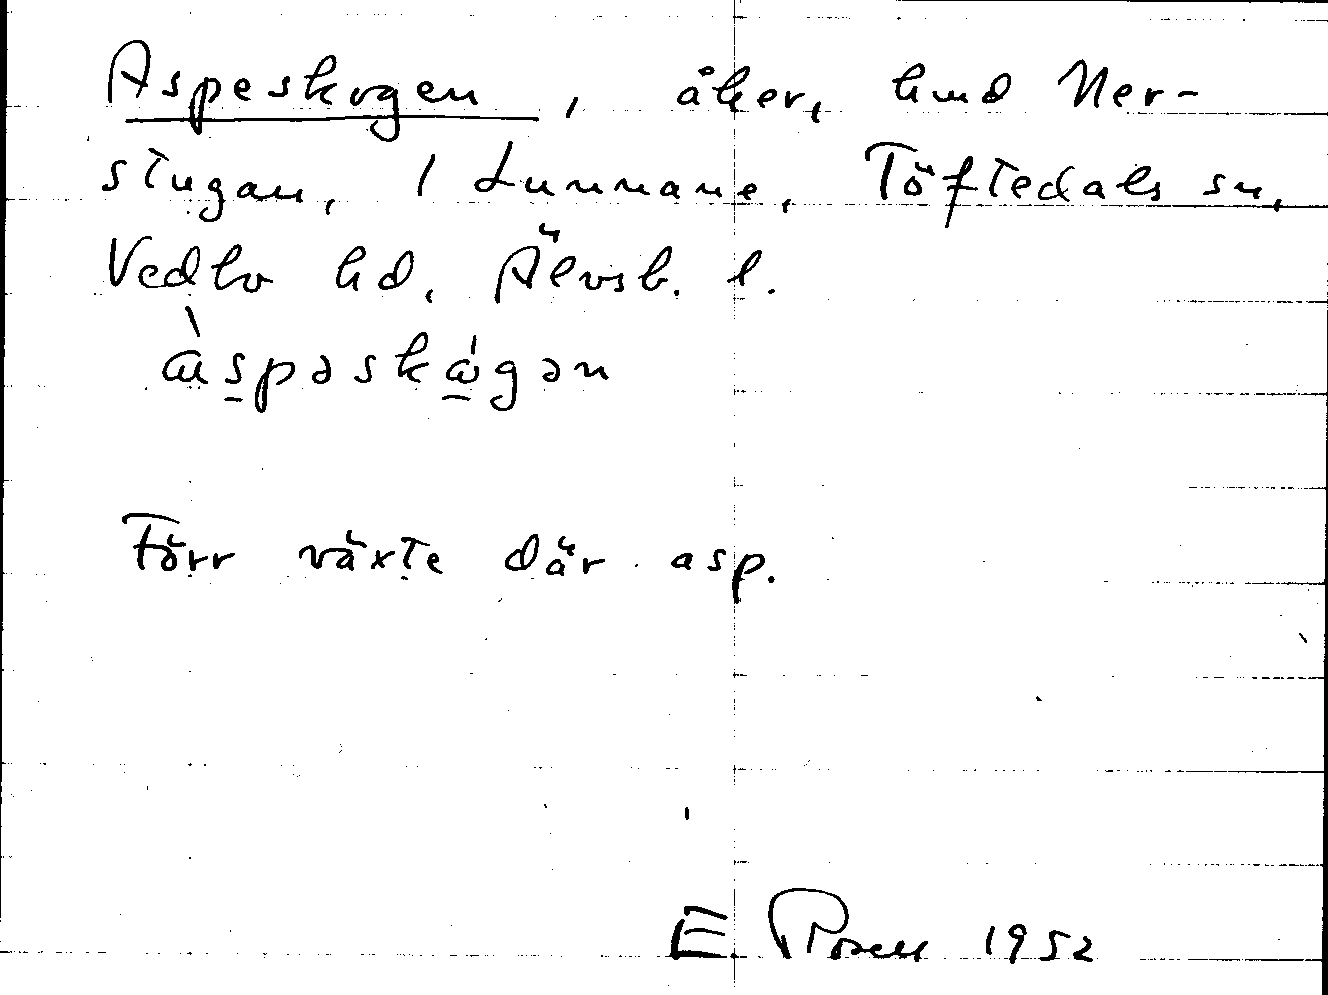 Aspeskogen, åker, hmd Ner-
stugan, 1 Lunnane, Töftedals sn,
Vedbo hd, Älvsb. l.
àspəskǻgən
Förr växte där asp.
E. Rosen 1952